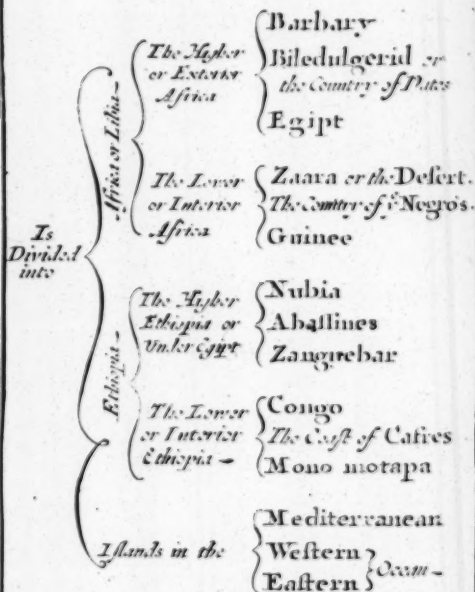 Is
Divided
into
Africa or Libia
The Higher
or Exterior
Africa
Barbary
Biledulgerid or
the Country of Dates
Egipt
The Lower
or Interior
Africa
Zaara or the Desert.
The Country of yᵉ Negro's.
Guinee
Ethiopia
The Higher
Ethiopia or
Under Egipt
Nubia
Abaſſines
Zanguebar
The Lower
or Interior
Ethiopia
Congo
The Coaſt of Cafres
Mono motapa
Iſlands in the
Mediterranean
Weſtern
Eaſtern
Ocean